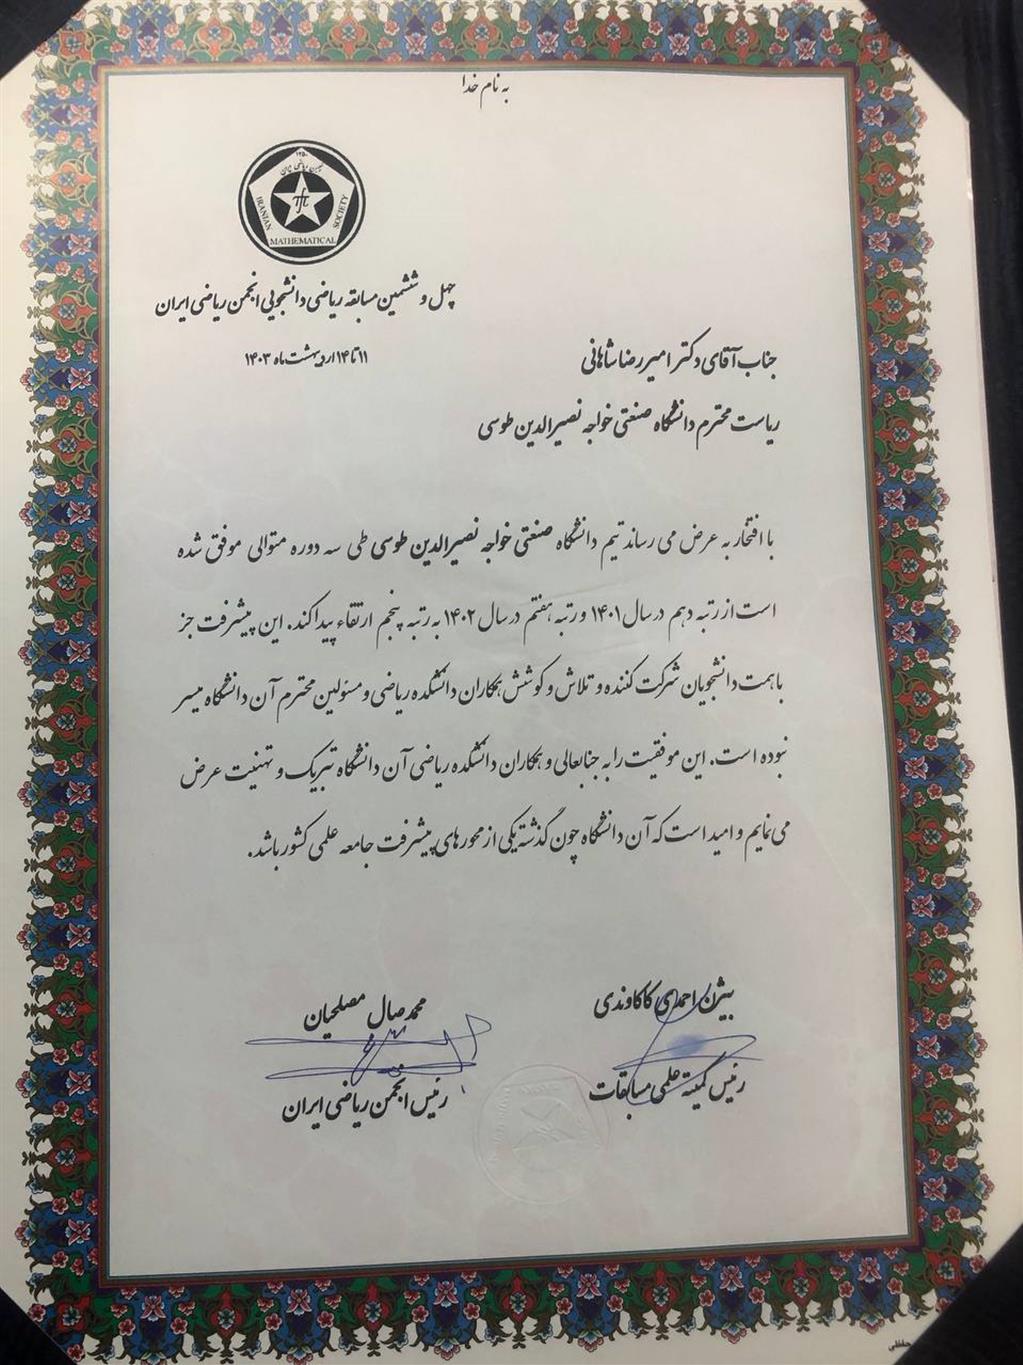 به نام خدا
۱۳۵۰
انجمن ریاضی ایران
IRANIAN
MATHEMATICAL
SOCIETY
چهل و ششمین مسابقه ریاضی دانشجویی انجمن ریاضی ایران
۱۱ تا ۱۴ اردیبهشت ماه ۱۴۰۳
جناب آقای دکتر امیررضا شاهانی
ریاست محترم دانشگاه صنعتی خواجه نصیرالدین طوسی
با افتخار به عرض می رساند تیم دانشگاه صنعتی خواجه نصیرالدین طوسی طی سه دوره متوالی موفق شده
است از رتبه دهم در سال ۱۴۰۱ و رتبه هفتم در سال ۱۴۰۲ به رتبه پنجم ارتقاء پیدا کند. این پیشرفت جز
با همت دانشجویان شرکت کننده و تلاش و کوشش همکاران دانشکده ریاضی و مسئولین محترم آن دانشگاه میسر
نبوده است. این موفقیت را به جنابعالی و همکاران دانشکده ریاضی آن دانشگاه تبریک و تهنیت عرض
می نمایم و امید است که آن دانشگاه چون گذشته یکی از محورهای پیشرفت جامعه علمی کشور باشد.
بیژن احمدی کاکاوندی
رئیس کمیته علمی مسابقات
محمد صال مصلحیان
رئیس انجمن ریاضی ایران